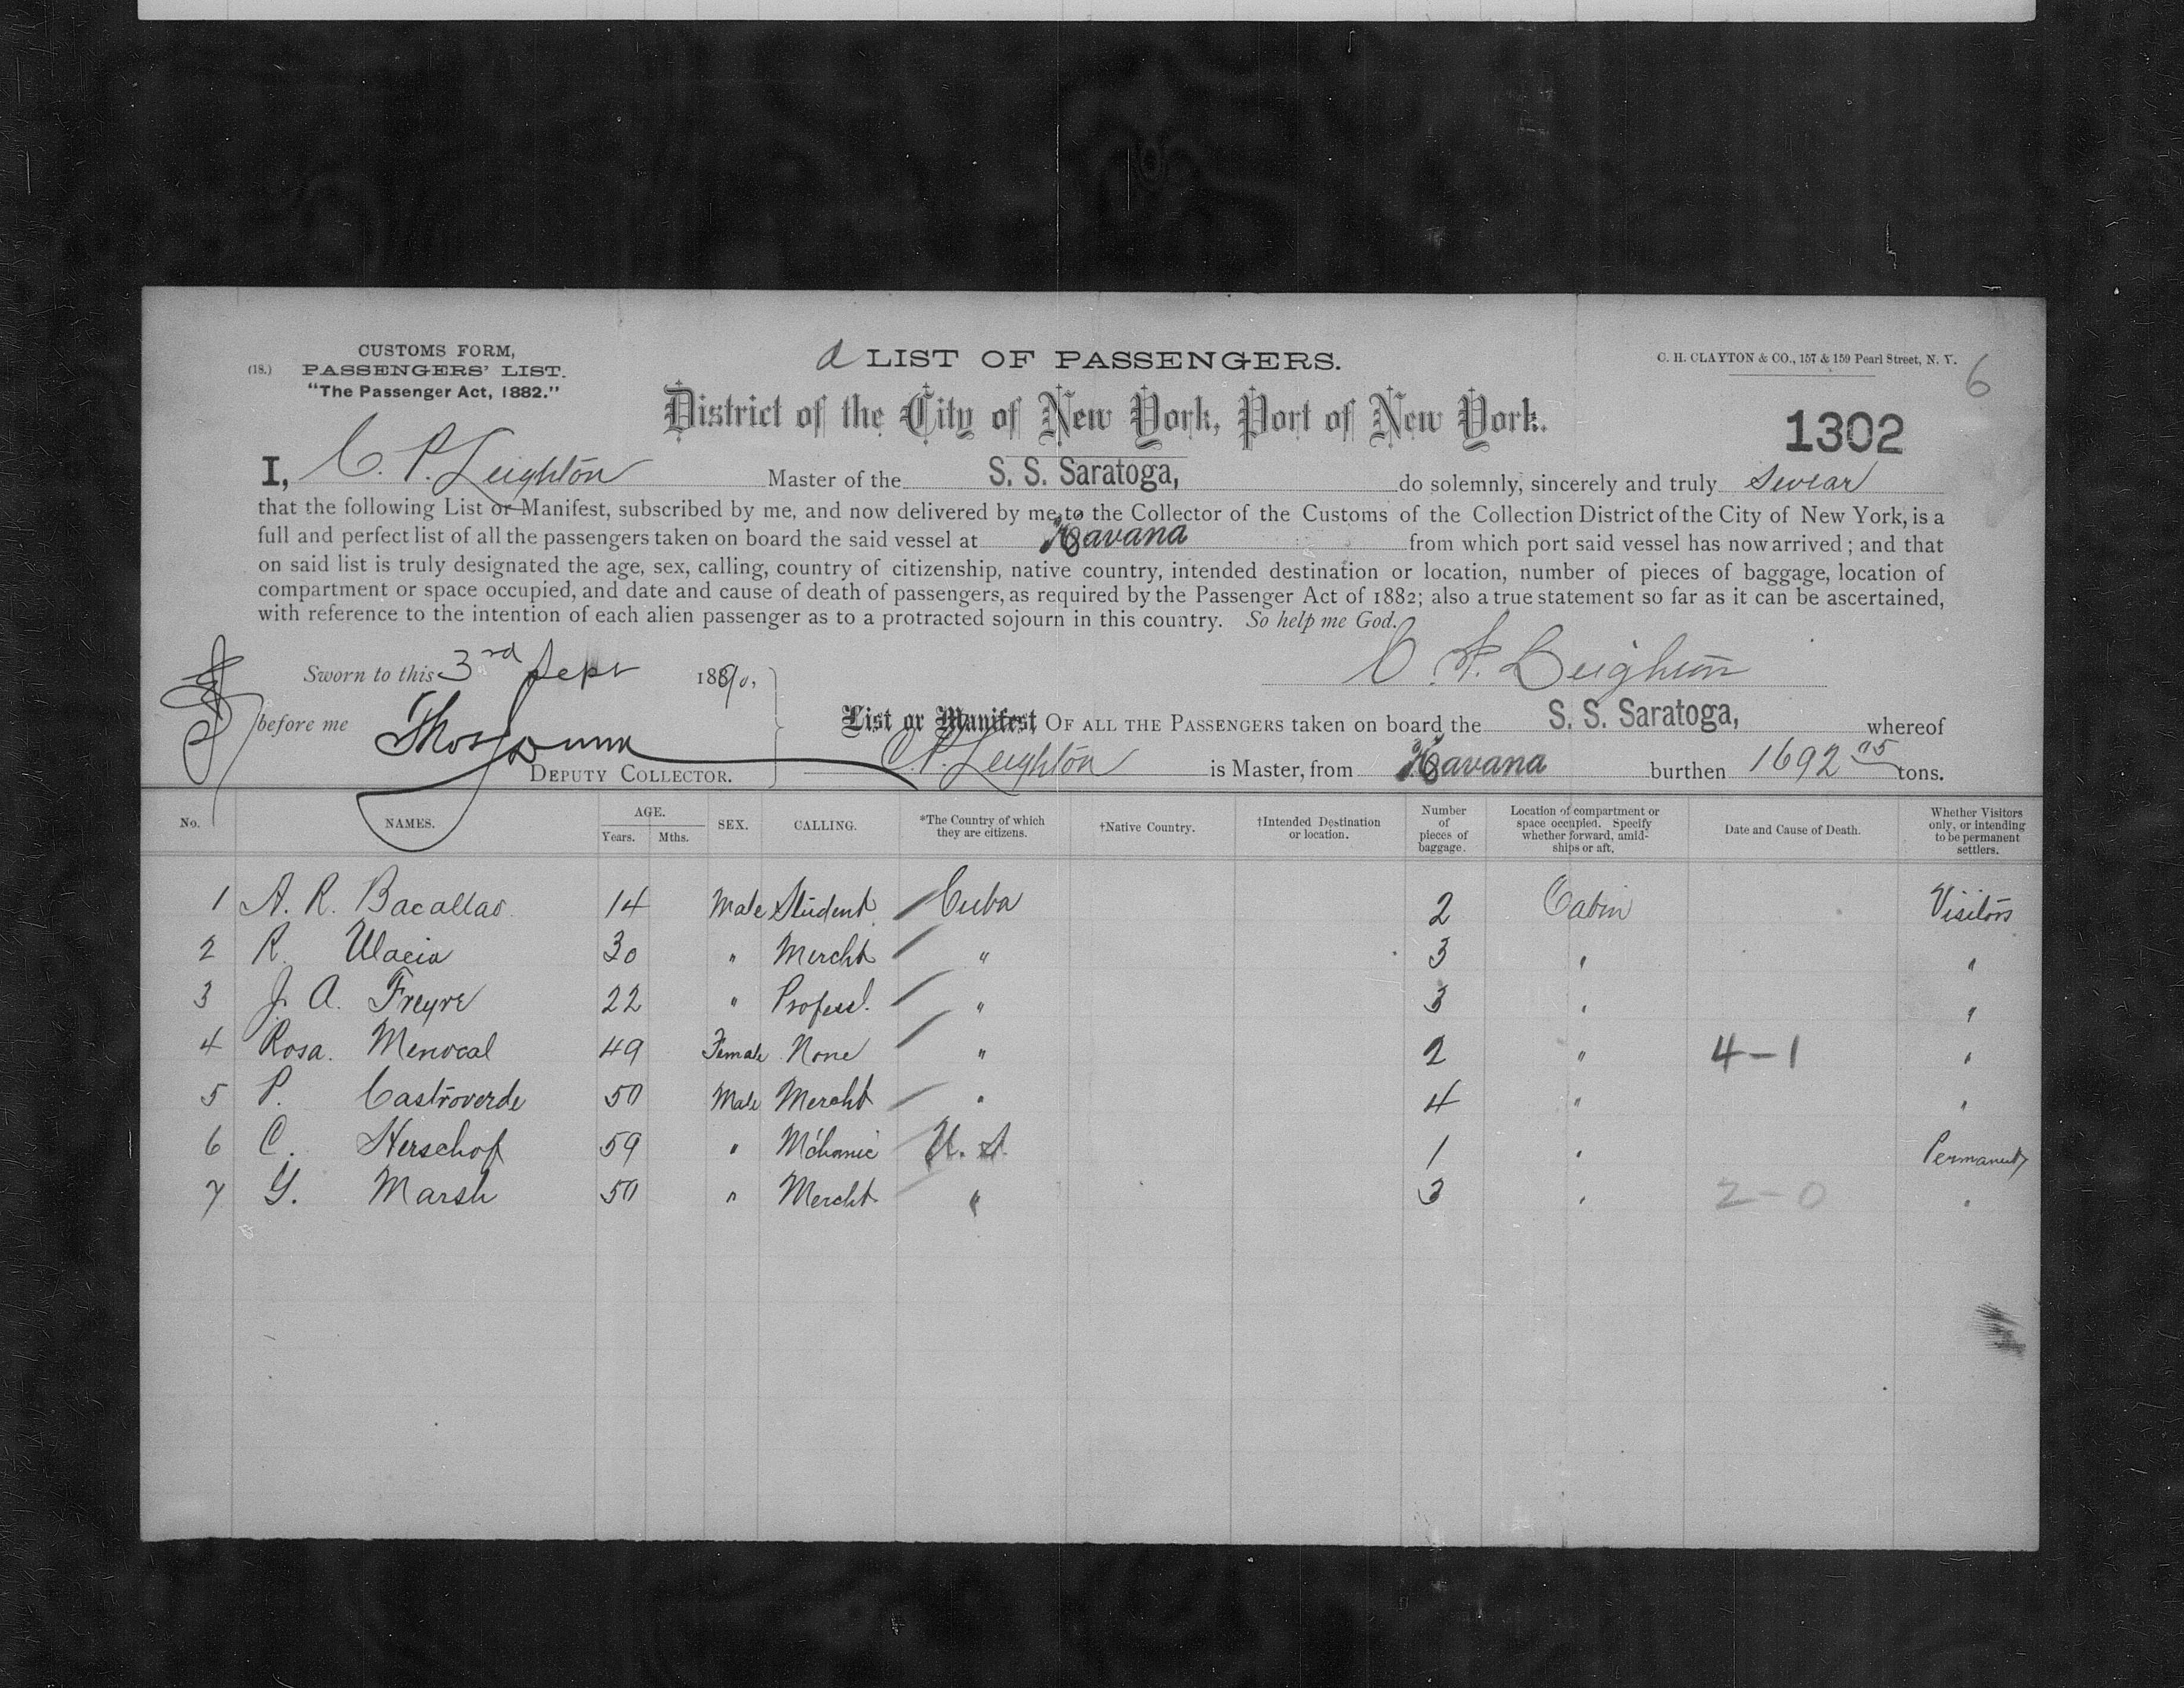 CUSTOMS FORM,
(18.) PASSENGERS' LIST.
"The Passenger Act, 1882."
a LIST OF PASSENGERS.
C. H. CLAYTON & CO., 157 & 159 Pearl Street, N. Y.
6
District of the City of New York, Port of New York.
1302
I, C. P. Leighton Master of the S. S. Saratoga, do solemnly, sincerely and truly swear
that the following List or Manifest, subscribed by me, and now delivered by me to the Collector of the Customs of the Collection District of the City of New York, is a
full and perfect list of all the passengers taken on board the said vessel at Havana from which port said vessel has now arrived; and that
on said list is truly designated the age, sex, calling, country of citizenship, native country, intended destination or location, number of pieces of baggage, location of
compartment or space occupied, and date and cause of death of passengers, as required by the Passenger Act of 1882; also a true statement so far as it can be ascertained,
with reference to the intention of each alien passenger as to a protracted sojourn in this country. So help me God.
Sworn to this 3rd Sept 1890, C. P. Leighton
before me Thos
List or Manifest OF ALL THE PASSENGERS taken on board the S. S. Saratoga, whereof
DEPUTY COLLECTOR. C. P. Leighton is Master, from Havana burthen 1692 75 tons.
No. NAMES. AGE. Years. Mths. SEX. CALLING. *The Country of which they are citizens. †Native Country. †Intended Destination or location. Number of pieces of baggage. Location of compartment or space occupied. Specify whether forward, amidships or aft. Date and Cause of Death. Whether Visitors only, or intending to be permanent settlers.
1 A. R. Bacallao 14 Male Student Cuba 2 Cabin Visitors
2 R. Ulacia 30 " Mercht " 3 " "
3 J. A. Freyre 22 " Professl. " 3 " "
4 Rosa Menocal 49 Female None " 2 " 4-1 "
5 P. Castroverde 50 Male Mercht " 4 " "
6 C. Herschof 59 " M'chanic U. S. 1 " Permanent
7 G. Marsh 50 " Mercht " 3 " 2-0 "